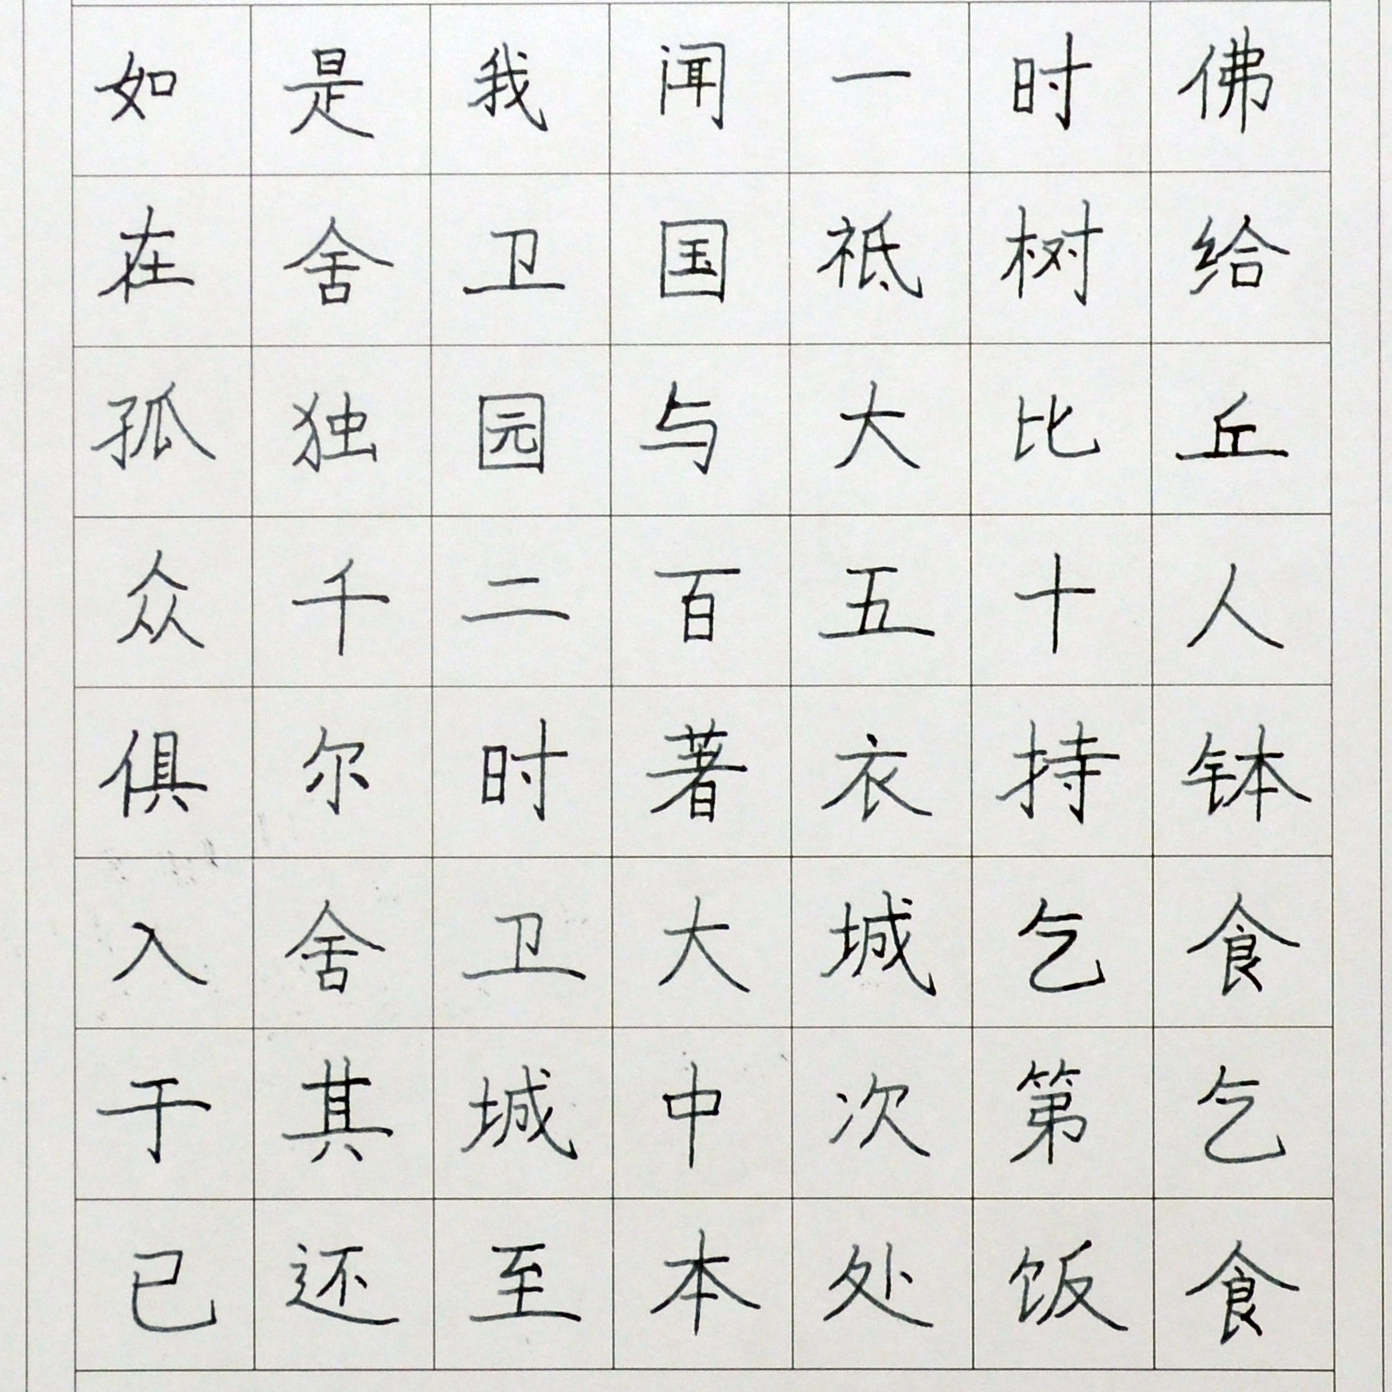 如是我闻一时佛
在舍卫国祇树给
孤独园与大比丘
众千二百五十人
俱尔时著衣持钵
入舍卫大城乞食
于其城中次第乞
已还至本处饭食